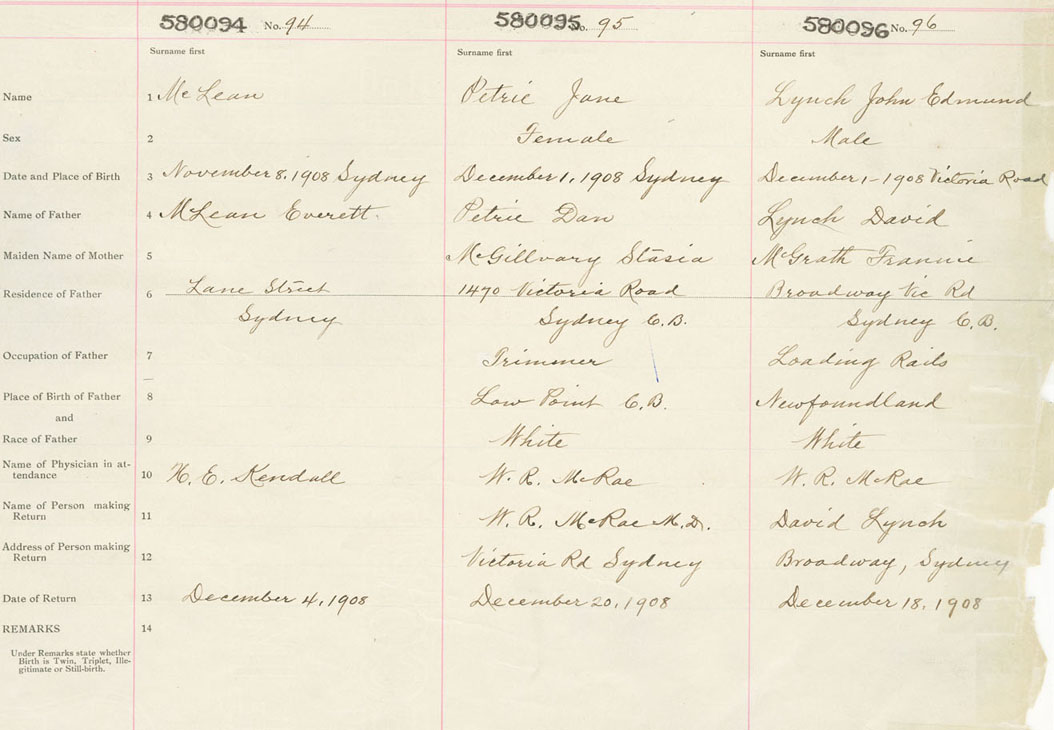 580094 No. 94 580095 No. 95 580096 No. 96
Surname first Surname first Surname first
Name 1 McLean Petrie Jane Lynch John Edmund
Sex 2 Female Male
Date and Place of Birth 3 November 8, 1908 Sydney December 1, 1908 Sydney December 1-1908 Victoria Road
Name of Father 4 McLean Everett. Petrie Dan Lynch David
Maiden Name of Mother 5 McGillvary Stasia McGrath Frannie
Residence of Father 6 Lane Street 1470 Victoria Road Broadway Vic Rd
Sydney Sydney C.B. Sydney C.B.
Occupation of Father 7 Trimmer Loading Rails
Place of Birth of Father 8 Low Point C.B. Newfoundland
and
Race of Father 9 White White
Name of Physician in at-
tendance 10 H. E. Kendall W. R. McRae W. R. McRae
Name of Person making
Return 11 W. R. McRae M.D. David Lynch
Address of Person making
Return 12 Victoria Rd Sydney Broadway, Sydney
Date of Return 13 December 4, 1908 December 20, 1908 December 18, 1908
REMARKS 14
Under Remarks state whether
Birth is Twin, Triplet, Ille-
gitimate or Still-birth.